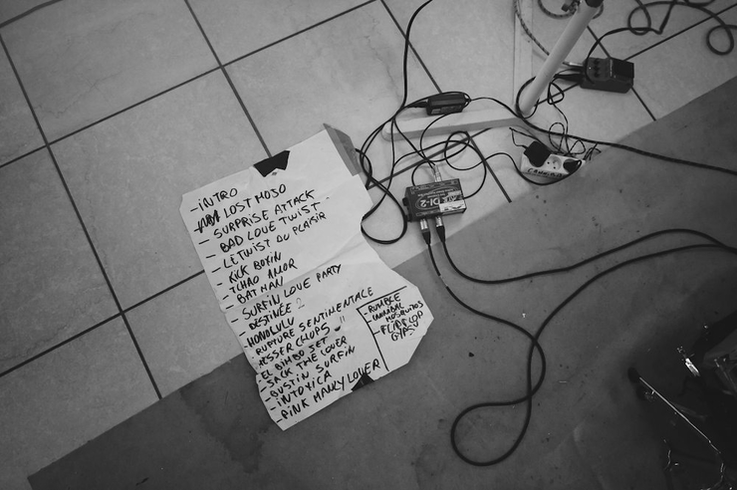 - INTRO
- LOST MOJO
- SURPRISE ATTACK
- BAD LOVE TWIST
- LE TWIST DU PLAISIR
- KICK BOXIN
- TCHAO AMOR
- BATMAN
- SURFIN LOVE PARTY
- DESTINÉE
- HONOLULU
- RUPTURE SENTIMENTALE
- MESSER CHUPS
- EL BIMBO JET
- JACK THE LOVER
- BUSTIN SURFIN
- INTOXICA
- PINK MANKY LOVER
- RUMBLE
- CANNIBAL
MOSQUITOS
- FLIP FLOP
GYPSY
DI-2